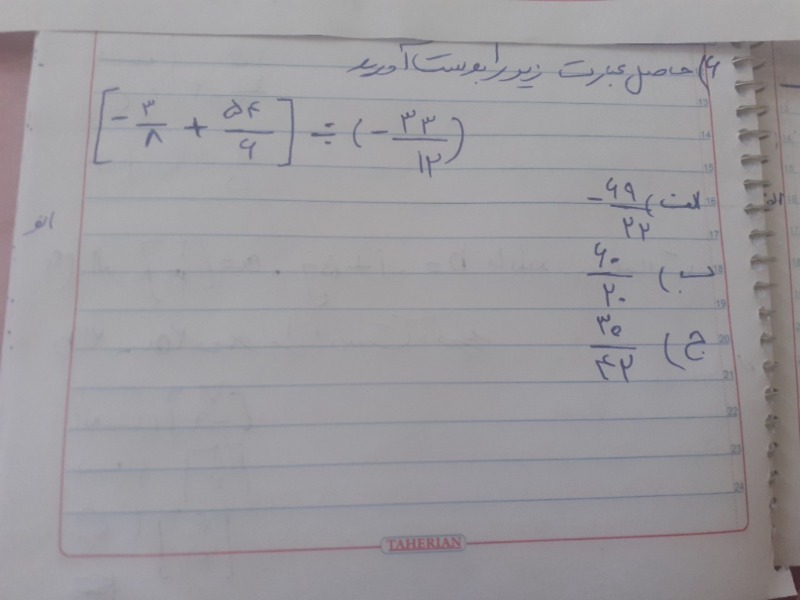 ۶) حاصل عبارت زیر را بدست آورید
[-۳/۸ + ۵۴/۶] ÷ (-۳۳/۱۲)
الف) -۶۹/۲۲
ب) ۶۰/۲۰
ج) ۳۵/۴۲
الف
13
14
15
16
17
18
19
20
21
22
23
24
TAHERIAN